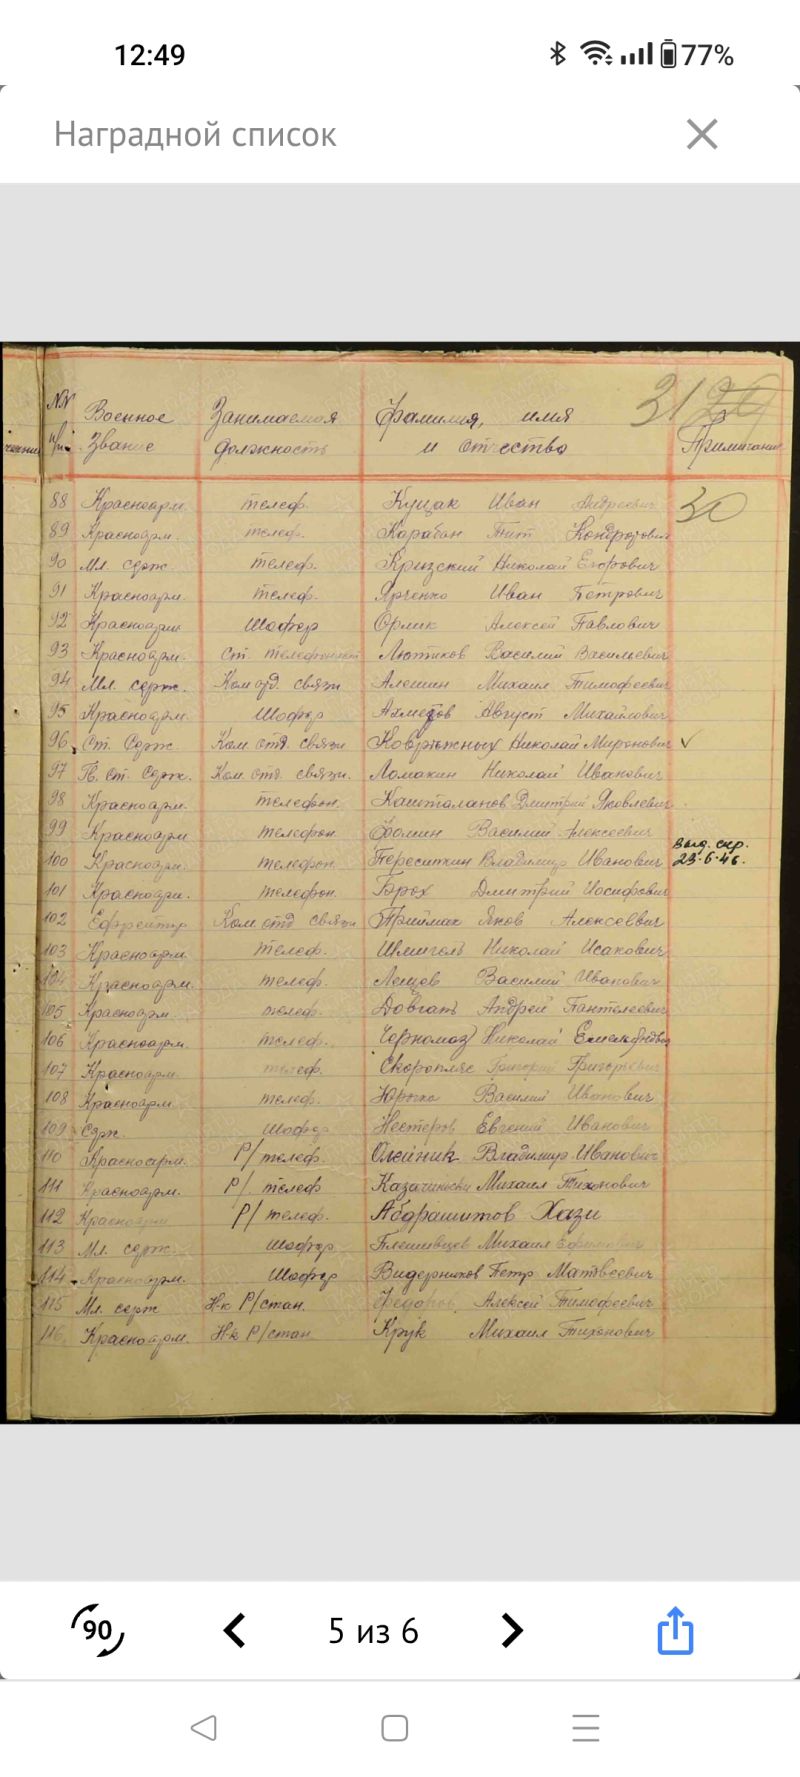 12:49
77%
Наградной список
31 29
NN п/п Военное Звание Занимаемая должность Фамилия, имя и отчество Примечание
30
88 Красноарм. телеф. Куцак Иван Андреевич
89 Красноарм. телеф. Карабан Тит Кондратович
90 Мл. серж. телеф. Николай Егорович
91 Красноарм. телеф. Ярченко Иван Петрович
92 Красноарм. Шофер Орлик Алексей Павлович
93 Красноарм. ст. телефонист Лютиков Василий Васильевич
94 Мл. серж. Ком отд. связи Алешин Михаил Тимофеевич
95 Красноарм. Шофер Ахметов Август Михайлович
96 Ст. Серж. Ком. отд. связи Николай Миронович ✓
97 Гв. ст. Серж. Ком. отд. связи. Ломакин Николай Иванович
98 Красноарм. телефон. Кашталанов Дмитрий Яковлевич
99 Красноарм. телефон Фомин Василий Алексеевич
выд. спр.
100 Красноарм. телефон. Пересипкин Владимир Иванович 23.6.46.
101 Красноарм. телефон. Брох Дмитрий Иосифович
102 Ефрейтор Ком. отд связи Приймак Яков Алексеевич
103 Красноарм. телеф. Николай Исакович
104 Красноарм. телеф. Василий Иванович
105 Красноарм. телеф. Довгань Андрей Пантелеевич
106 Красноарм. телеф. Черномаз Николай Емельянович
107 Красноарм. телеф. Скоропляс Григорий Григорьевич
108 Красноарм. телеф. Василий Иванович
109 Серж. Шофер Нестеров Евгений Иванович
110 Красноарм. Р/телеф. Олейник Владимир Иванович
111 Красноарм. Р/телеф Михаил Тихонович
112 Красноарм Р/телеф. Абдрашитов Хази
113 Мл. серж. Шофер Плешивцев Михаил Ефимович
114 Красноарм. Шофер Видерников Петр Матвеевич
115 Мл. серж Н-к Р/стан. Федоров Алексей Тимофеевич
116 Красноарм. Н-к Р/стан Крук Михаил Тихонович
90
5 из 6